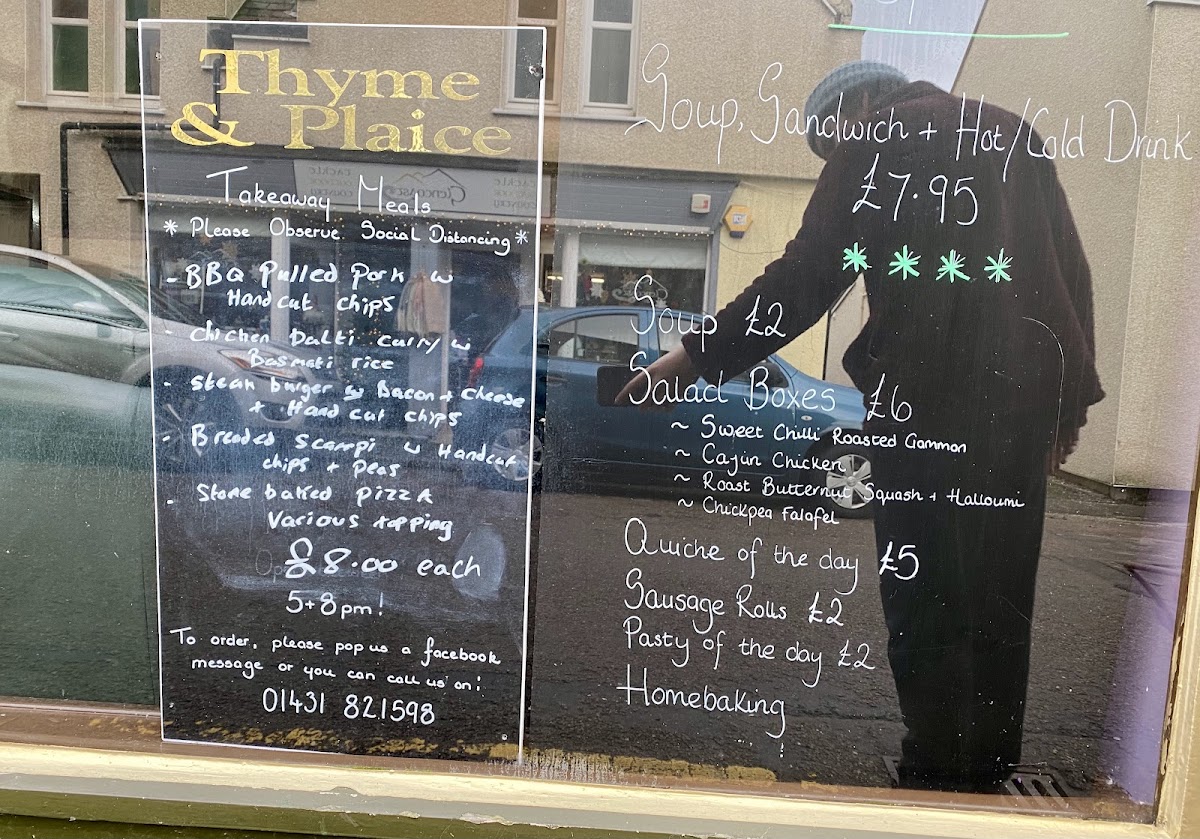 Thyme
& Plaice
Takeaway Meals
* Please Observe Social Distancing *
- BBQ Pulled Pork w
Handcut chips
- Chicken Balti curry w
Basmati rice
- Steak burger w Bacon + cheese
+ Hand cut chips
- Breaded Scampi w Handcut
chips + Peas
- Stone baked pizza
Various topping
£8.00 each
5+8pm!
To order, please pop us a facebook
message or you can call us on!
01431 821598
Soup, Sandwich + Hot/Cold Drink
£7.95
Soup £2
Salad Boxes £6
~ Sweet Chilli Roasted Gammon
~ Cajun Chicken
~ Roast Butternut Squash + Halloumi
~ Chickpea Falafel
Quiche of the day £5
Sausage Rolls £2
Pasty of the day £2
Homebaking